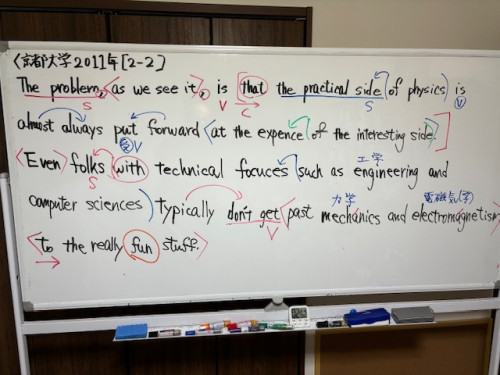 <京都大学2011年[2-2]
The problem, <as we see it>, is [that the practical side (of physics) is
S V C S V
almost always put forward <at the expence (of the interesting side.>]
受V
<Even> folks (with technical focuces (such as engineering and
S 工学
computer sciences) typically don't get <past mechanics and electromagnetism>
V 力学 電磁気(学)
<to the really fun stuff.>